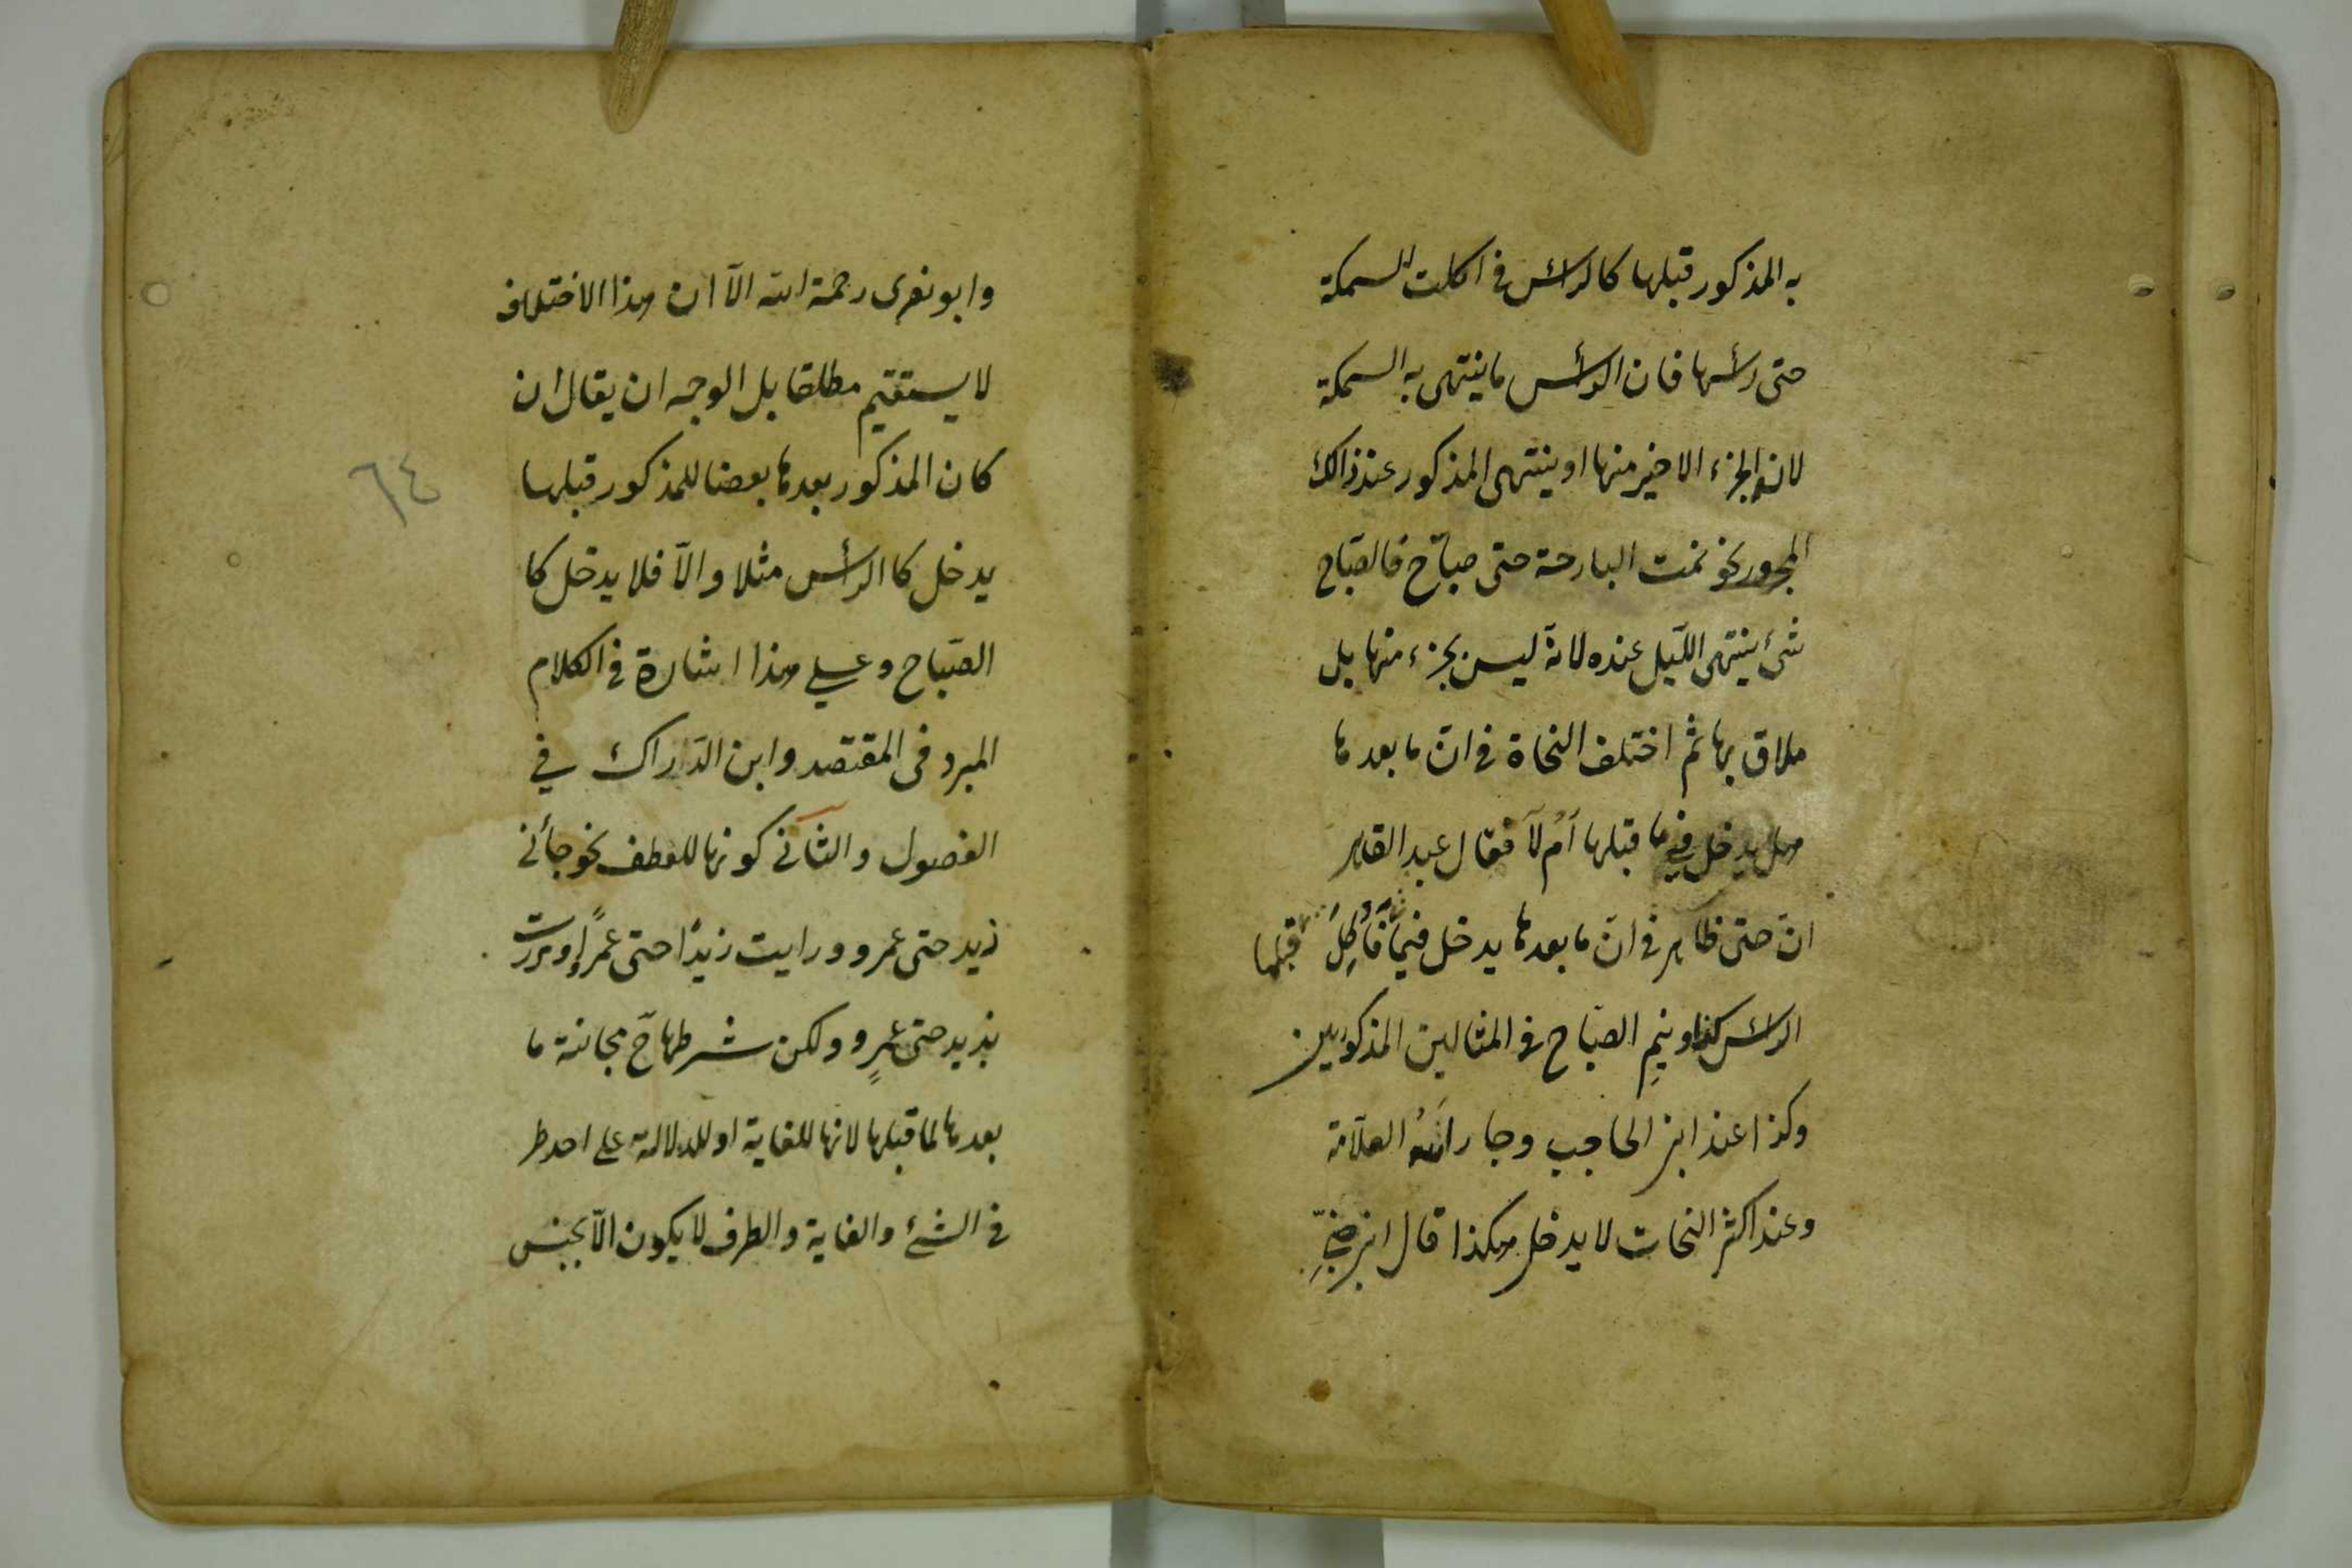 به المذكور قبلها كالرأس فى اكلت السمكة
حتى رأسها فان الرأس ما ينتهى به السمكة
لانه الجزء الاخير منها او ينتهى المذكور عند ذالك
المجرور نحو نمت البارحة حتى صباح فالصّباح
شئ ينتهى اللّيل عنده لانّه ليس بجزء منها بل
ملاق بها ثم اختلف النحاة فى انّ ما بعدها
هل يدخل فيما قبلها اَمْ لَا فقال عبد القاهر
انّ حتى ظاهر فى انّ ما بعدها يدخل فيما فَاُكِلَ قبلها
الرأس كذا ونيم الصّباح فى المثالين المذكورين
وكذا عند ابن الحاجب وجار اللّه العلّامة
وعند اكثر النحات لا يدخل هكذا قال ابن جنّى
وابو نصرى رحمة الله الّا ان هذا الاختلاف
لا يستقيم مطلقا بل الوجه ان يقال ان
كان المذكور بعدها بعضا للمذكور قبلها
٦٤
يدخل كا الرأس مثلا والّا فلا يدخل كا
الصّباح وعلى هذا اشارة فى الكلام
المبرد فى المقتصد وابن الدّراك فى
الفصول والثّانى كونها للعطف نحو جأنى
زيد حتى عمرو ورايت زيدًا حتى عمرًا ومررت
بزيد حتى عمرٍو ولكن شرطها ح مجانسة ما
بعدها لما قبلها لانها للغاية او للدلالة على احد ط
فى الشئ والغاية والطرف لا يكون الّا بجنس